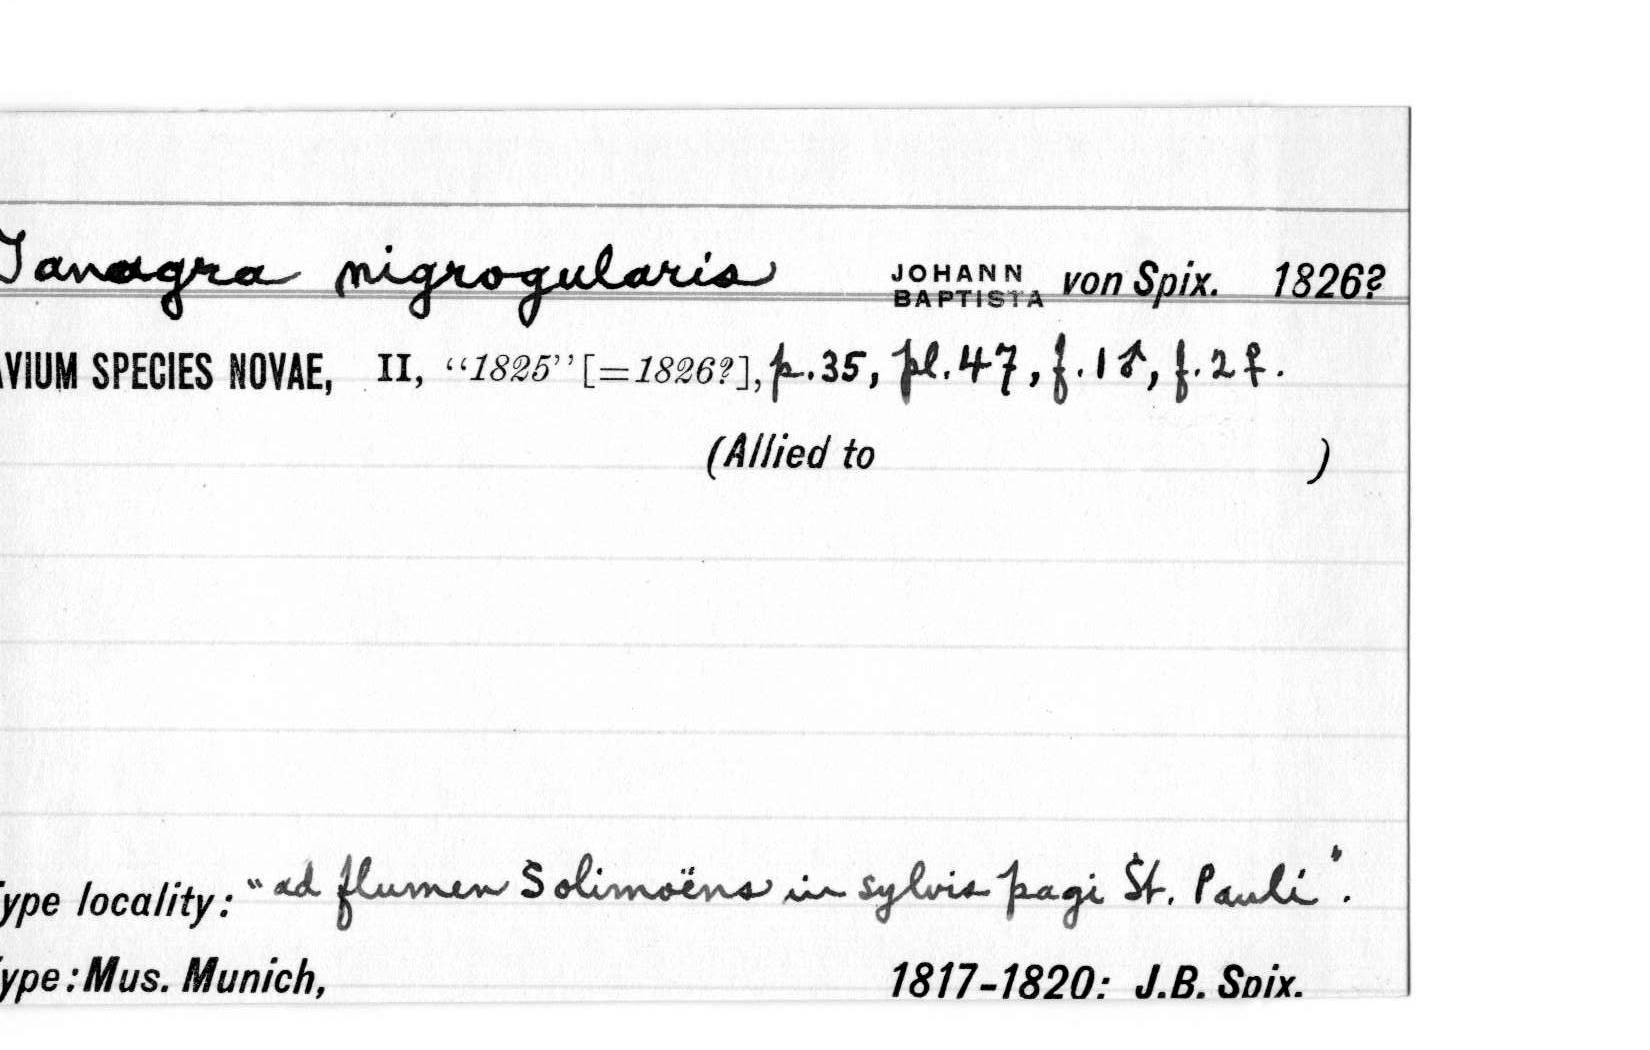 Tanagra nigrogularis JOHANN BAPTISTA von Spix. 1826?
AVIUM SPECIES NOVAE, II, "1825" [=1826?], p.35, pl.47, f.1♂, f.2♀.
(Allied to )
ype locality: "ad flumen Solimoëns in sylvis pagi St. Pauli".
ype: Mus. Munich, 1817-1820: J.B. Spix.